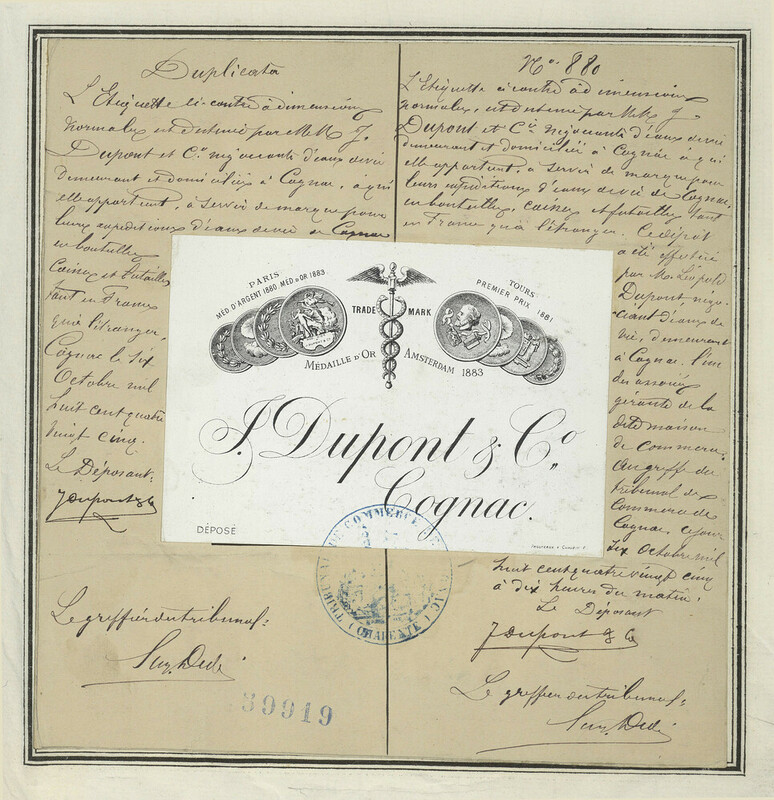 Duplicata
L'Etiquette ci-contre à dimensions
normales est détenue par MM J.
Dupont et Cie négociants d'eaux de vie
demeurant et domiciliés à Cognac, a qui
elle appartient, a servir de marque pour
leurs expéditions d'eaux de vie de Cognac
en bouteilles
Caisses et futailles
tant en France
qu'à l'étranger,
Cognac le six
Octobre mil
huit cent quatre
vingt cinq.
Le Déposant:
J Dupont & Co
Le greffier du tribunal:
39919
No. 880
L'Etiquette ci contre à dimensions
normales, est détenue par MM J.
Dupont et Cie négociants d'eaux de vie
demeurant et domiciliés à Cognac a qui
elle appartient, a servir de marque pour
leurs expéditions d'eaux de vie de Cognac,
en bouteilles, caisses et futailles tant
en France qu'à l'étranger. Ce dépôt
a été effectué
par M. Léopold
Dupont négo-
ciant d'eaux de
vie, demeurant
à Cognac. l'un
des associés
gérants de la
dite maison
de commerce.
Au greffe du
tribunal de
Commerce de
Cognac, ce jour
six Octobre mil
huit cent quatre vingt cinq
à dix heures du matin.
Le Déposant
J Dupont & Co
Le greffier du tribunal:
PARIS
MÉD. D'ARGENT 1880, MÉD. D'OR 1883
TOURS
PREMIER PRIX 1881
TRADE MARK
MÉDAILLE D'OR AMSTERDAM 1883
J. Dupont & Co
Cognac.
DÉPOSÉ
TRIBUNAL DE COMMERCE DE COGNAC (CHARENTE)